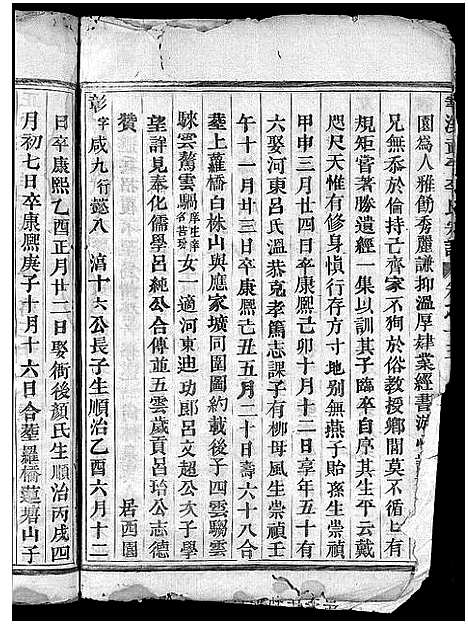 園為人雅飭秀麗謙抑溫厚肄業經書
兄無忝於倫持己齊家不狥於俗教授鄉閭莫不循循有
規矩嘗著勝遺經一集以訓其子臨卒自序其生平云戴
咫尺天惟有修身慎行存方寸地别無燕子貽孫生崇禎
甲申三月廿四日卒康熙己卯十月十二日享年五十有
六娶河東呂氏溫恭克孝篤志課子有柳母風生崇禎壬
午十一月廿三日卒康熙己丑五月二十日壽六十八合
塟上蘿橋白株山與應家壙同圖圍約載後子四雲驌雲
騋雲驁雲騧庠生諱名若琮女一適河東迪功郎呂文超公次子學
望詳見奉化儒學呂純公合傳並五雲歲貢呂珨公志德
贊 居西園
彰字咸九行懿八 湻十六公長子生順治乙酉六月十二
日卒康熙乙酉正月廿二日娶衙後顏氏生順治丙戌四
月初七日卒康熙庚子十月十六日合塟羅橋蓮塘山子